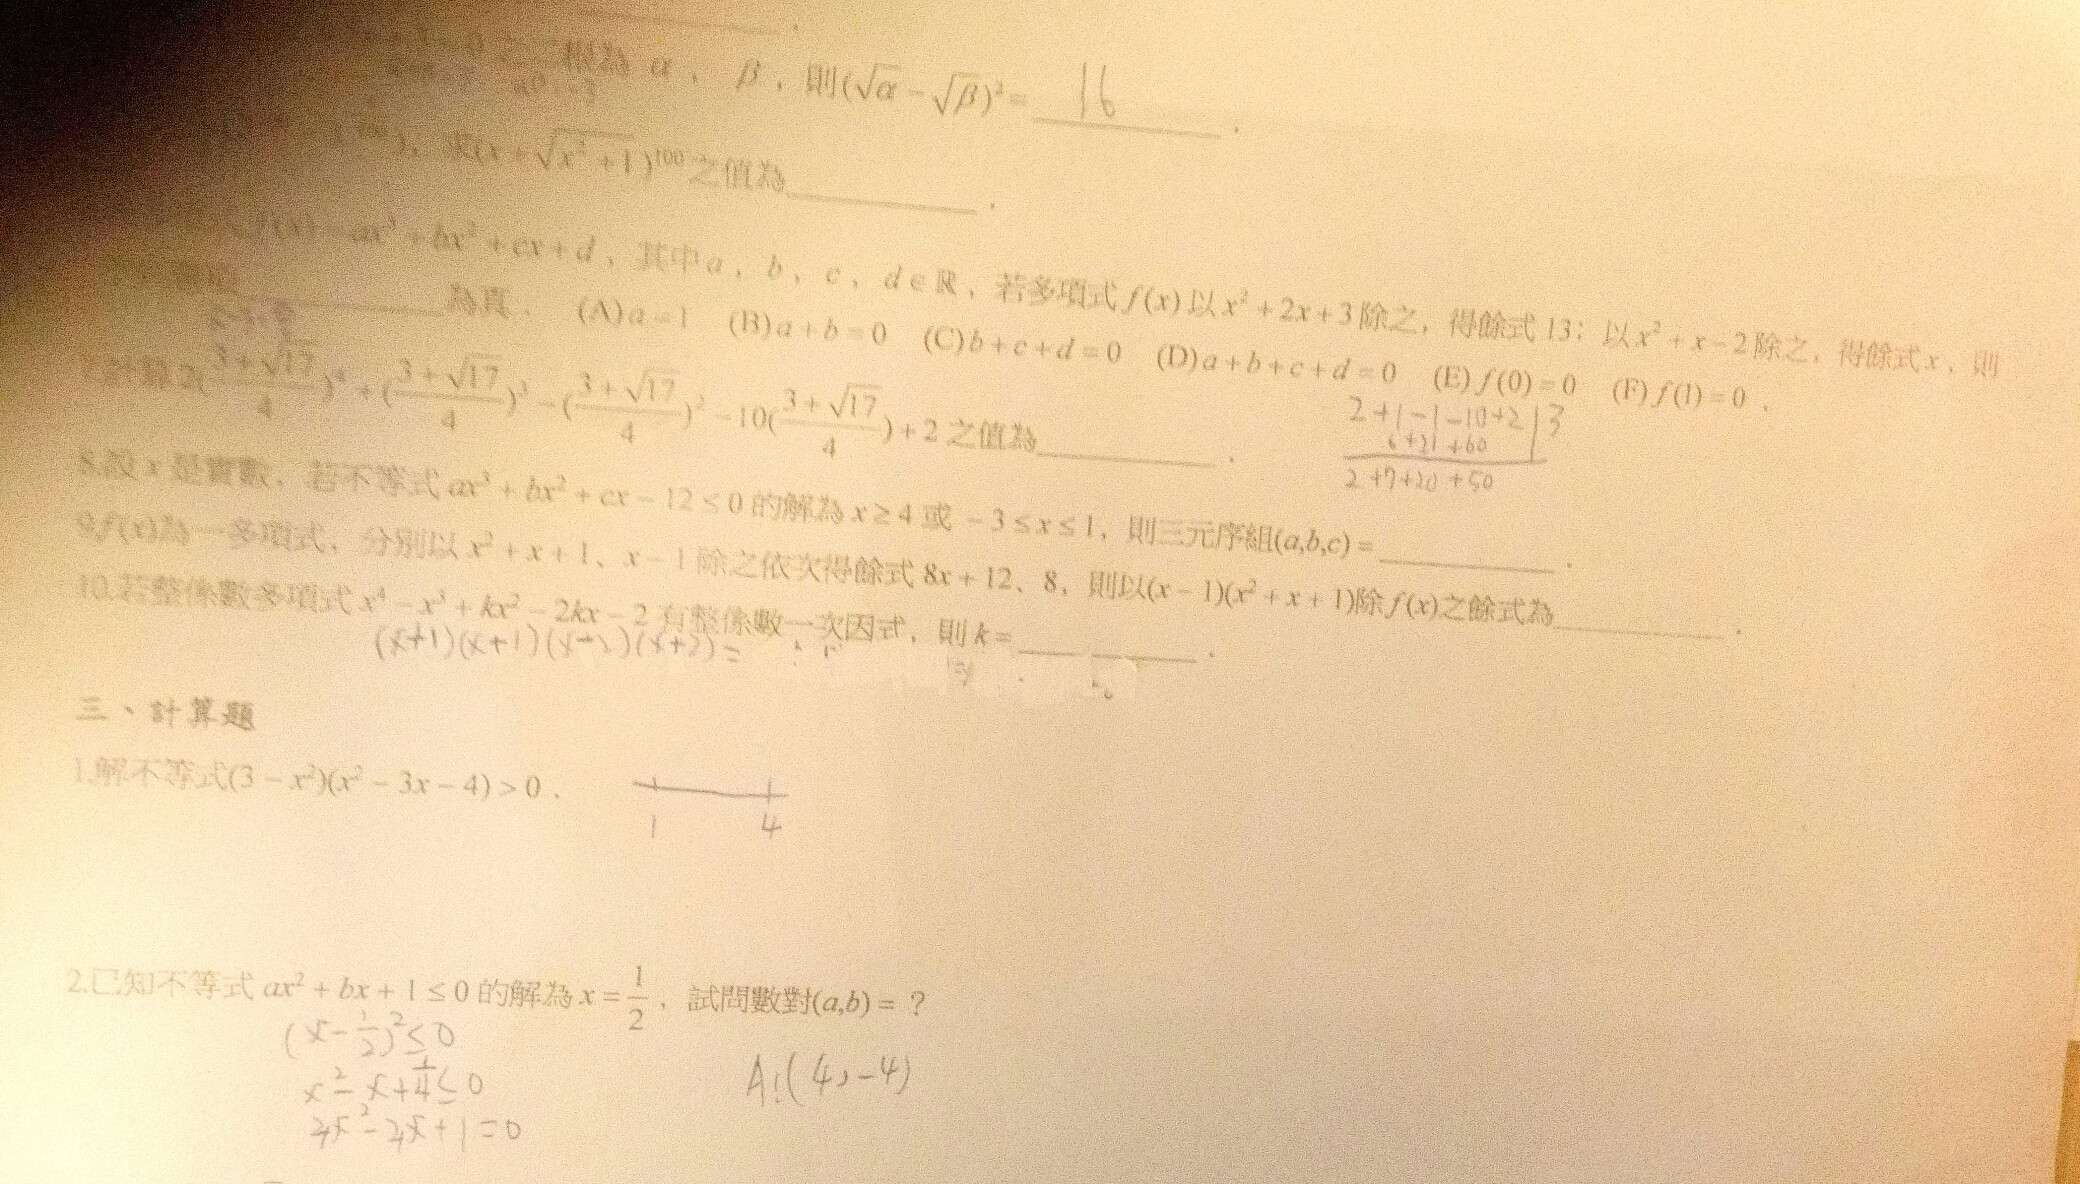 根為 α , β , 則(√α - √β)² = 16 .
求(x + √x² + 1)¹⁰⁰ 之值為 .
f(x) = ax³ + bx² + cx + d , 其中 a , b , c , d ∈ ℝ , 若多項式 f(x) 以 x² + 2x + 3 除之, 得餘式 13; 以 x² + x - 2 除之, 得餘式 x , 則
為真 . (A) a = 1 (B) a + b = 0 (C) b + c + d = 0 (D) a + b + c + d = 0 (E) f(0) = 0 (F) f(1) = 0 .
7.計算 2(3 + √17/4)⁴ + (3 + √17/4)³ - (3 + √17/4)² - 10(3 + √17/4) + 2 之值為 .
2 + 1 - 1 - 10 + 2 | 3
6 + 21 + 60
2 + 7 + 20 + 50
8.設 x 是實數, 若不等式 ax³ + bx² + cx - 12 ≤ 0 的解為 x ≥ 4 或 -3 ≤ x ≤ 1, 則三元序組(a,b,c) = .
9.f(x)為一多項式, 分別以 x² + x + 1、x - 1 除之依次得餘式 8x + 12、8, 則以(x - 1)(x² + x + 1)除 f(x)之餘式為 .
10.若整係數多項式 x⁴ - x³ + kx² - 2kx - 2 有整係數一次因式, 則 k = .
(x+1)(x+1)(x-2)(x+2) =
三、計算題
1.解不等式(3 - x²)(x² - 3x - 4) > 0 .
1 4
2.已知不等式 ax² + bx + 1 ≤ 0 的解為 x = 1/2 , 試問數對(a,b) = ?
(x - 1/2)² ≤ 0
x² - x + 1/4 ≤ 0
4x² - 4x + 1 = 0
A:(4, -4)